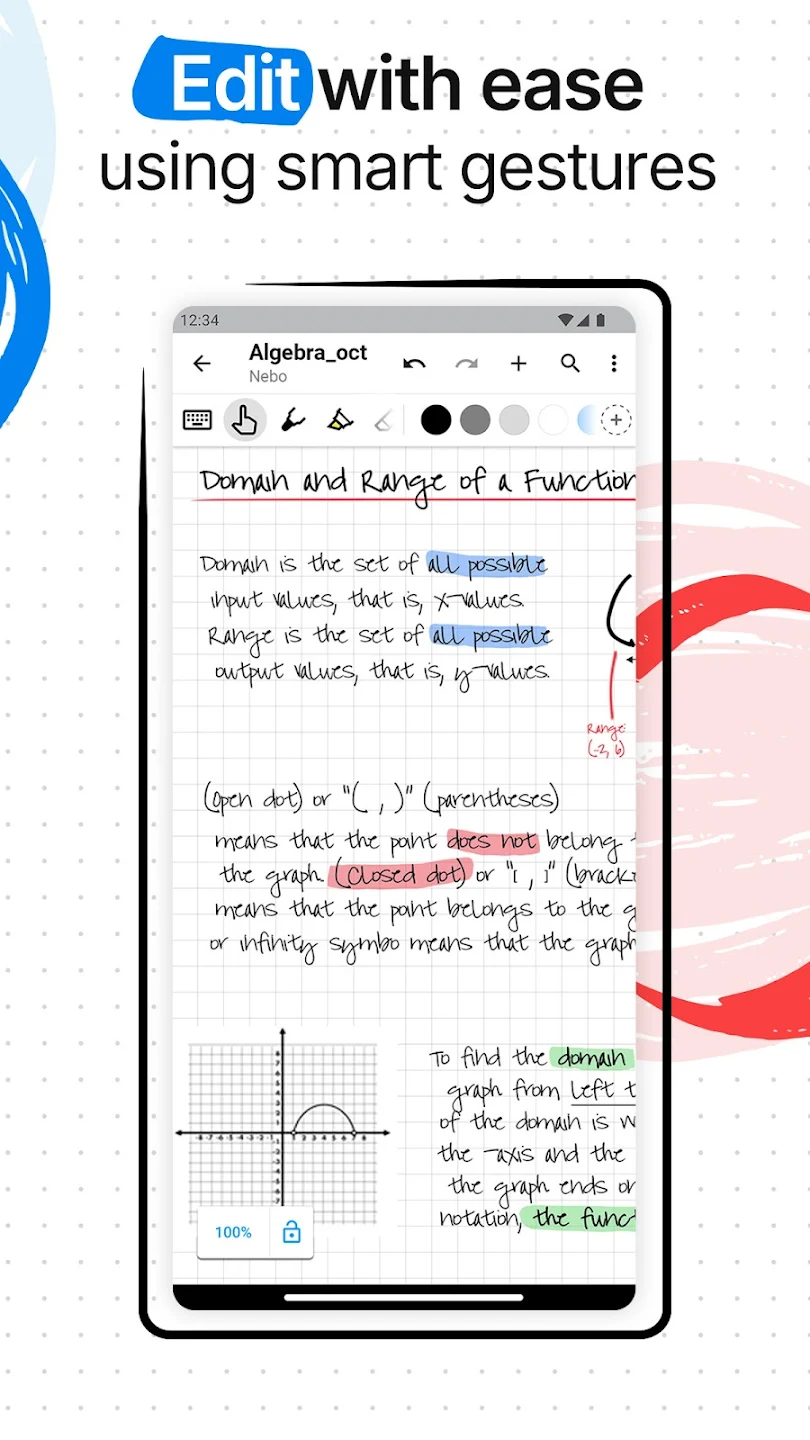 Edit with ease
using smart gestures
12:34
Algebra_oct
Nebo
Domain and Range of a Function
Domain is the set of all possible
input values, that is, x-values.
Range is the set of all possible
output values, that is, y-values.
Range:
(-2, 6)
(Open dot) or "( , )" (parentheses)
means that the point does not belong
the graph. (Closed dot) or "[ , ]" (brack
means that the point belongs to the g
or infinity symbo means that the graph
8
7
-8 -7 -6 -5 -4 -3 -2 -1 1 2 3 4 5 6 7 8
To find the domain
graph from left t
of the domain is w
the -axis and the
the graph ends or
notation, the func
100%